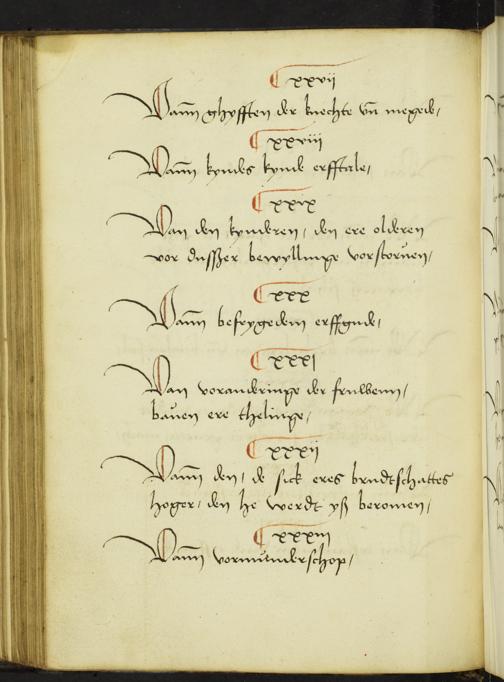 ¶ xxvii
Vann ghyfften der knechte vn̄ megede,
¶ xxviii
Vann kyndes kynde erfftale,
¶ xxix
Van den kynderen, den ere olderen
vor dusßer bewyllinge vorstoruen,
¶ xxx
Vann befrygedem erffgude,
¶ xxxi
Van voranderinge der fruwenn,
bauen ere thelinge,
¶ xxxii
Vann den, de sick eres brudtschattes
hoger, den he werdt yß beromen,
¶ xxxiii
Vann vormunderschop,